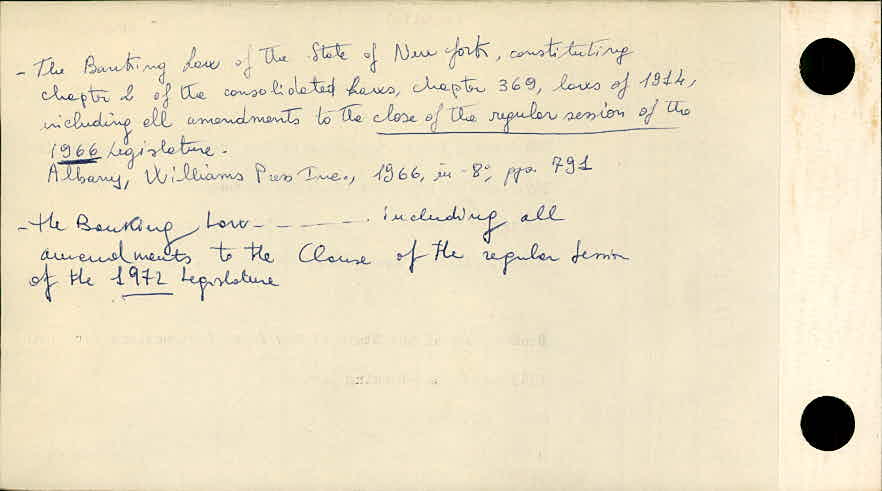 - The Banking Law of the State of New York, constituting
chapter 2 of the consolidated Laws, chapter 369, laws of 1914,
including all amendments to the close of the regular session of the
1966 Legislature.
Albany, Williams Press Inc., 1966, in-8°, pp. 791
- the Banking Law - - - - - - including all
amendments to the Clause of the regular session
of the 1972 Legislature